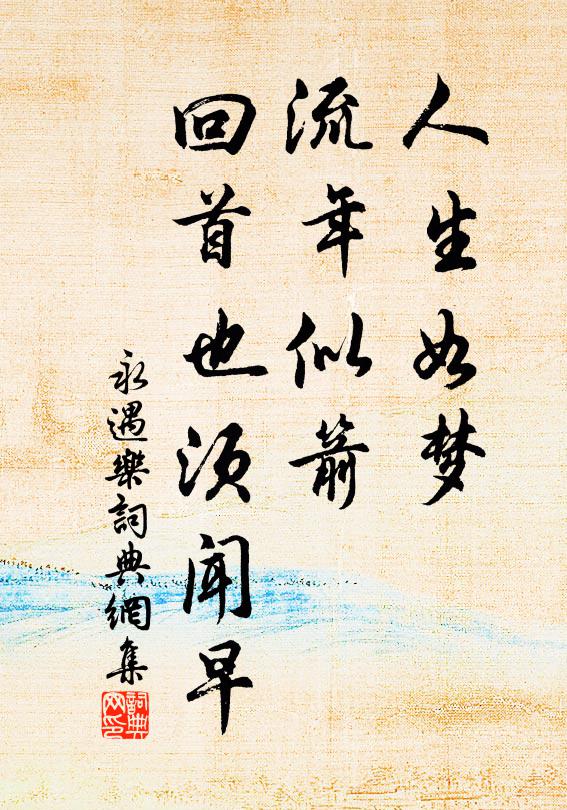 人生如梦
流年似箭
回首也须闻早
永遇樂詞典網集
詞典网印